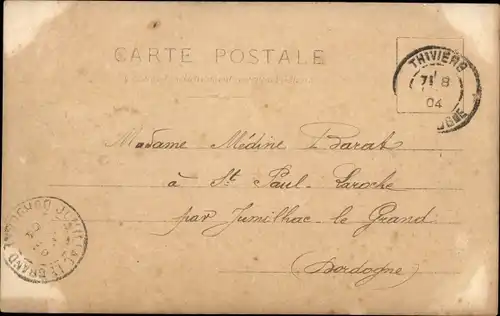 CARTE POSTALE
THIVIERS
7E 8
04
Madame Médine Barat
à St Paul Laroche
par Jumilhac le Grand
(Dordogne)
JUMILHAC LE GRAND